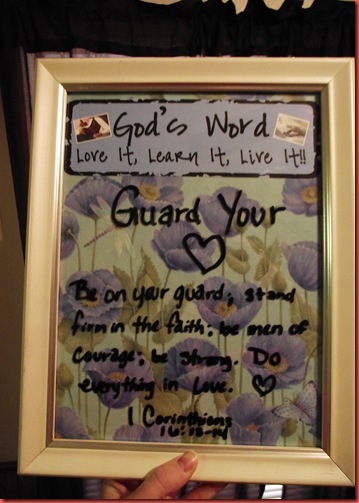 God's Word
Love It, Learn It, Live It!!
Guard Your
♡
Be on your guard; stand
firm in the faith; be men of
courage; be strong. Do
everything in Love. ♡
1 Corinthians
16:13-14